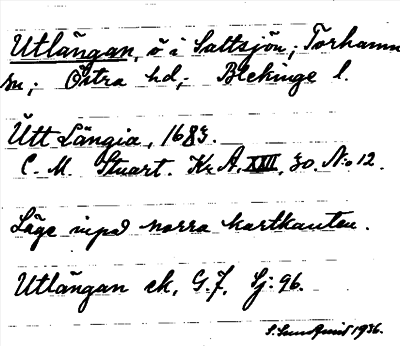 Utlängan, ö i Saltsjön; Torhamn
sn; Östra hd; Blekinge l.
Utt Längia, 1683.
C. M. Stuart. Kr. A. XIII, 30. N:o 12.
Läge invid norra kartkanten.
Utlängan ek, G.J. Sj: 96.
S. Sundquist 1936.